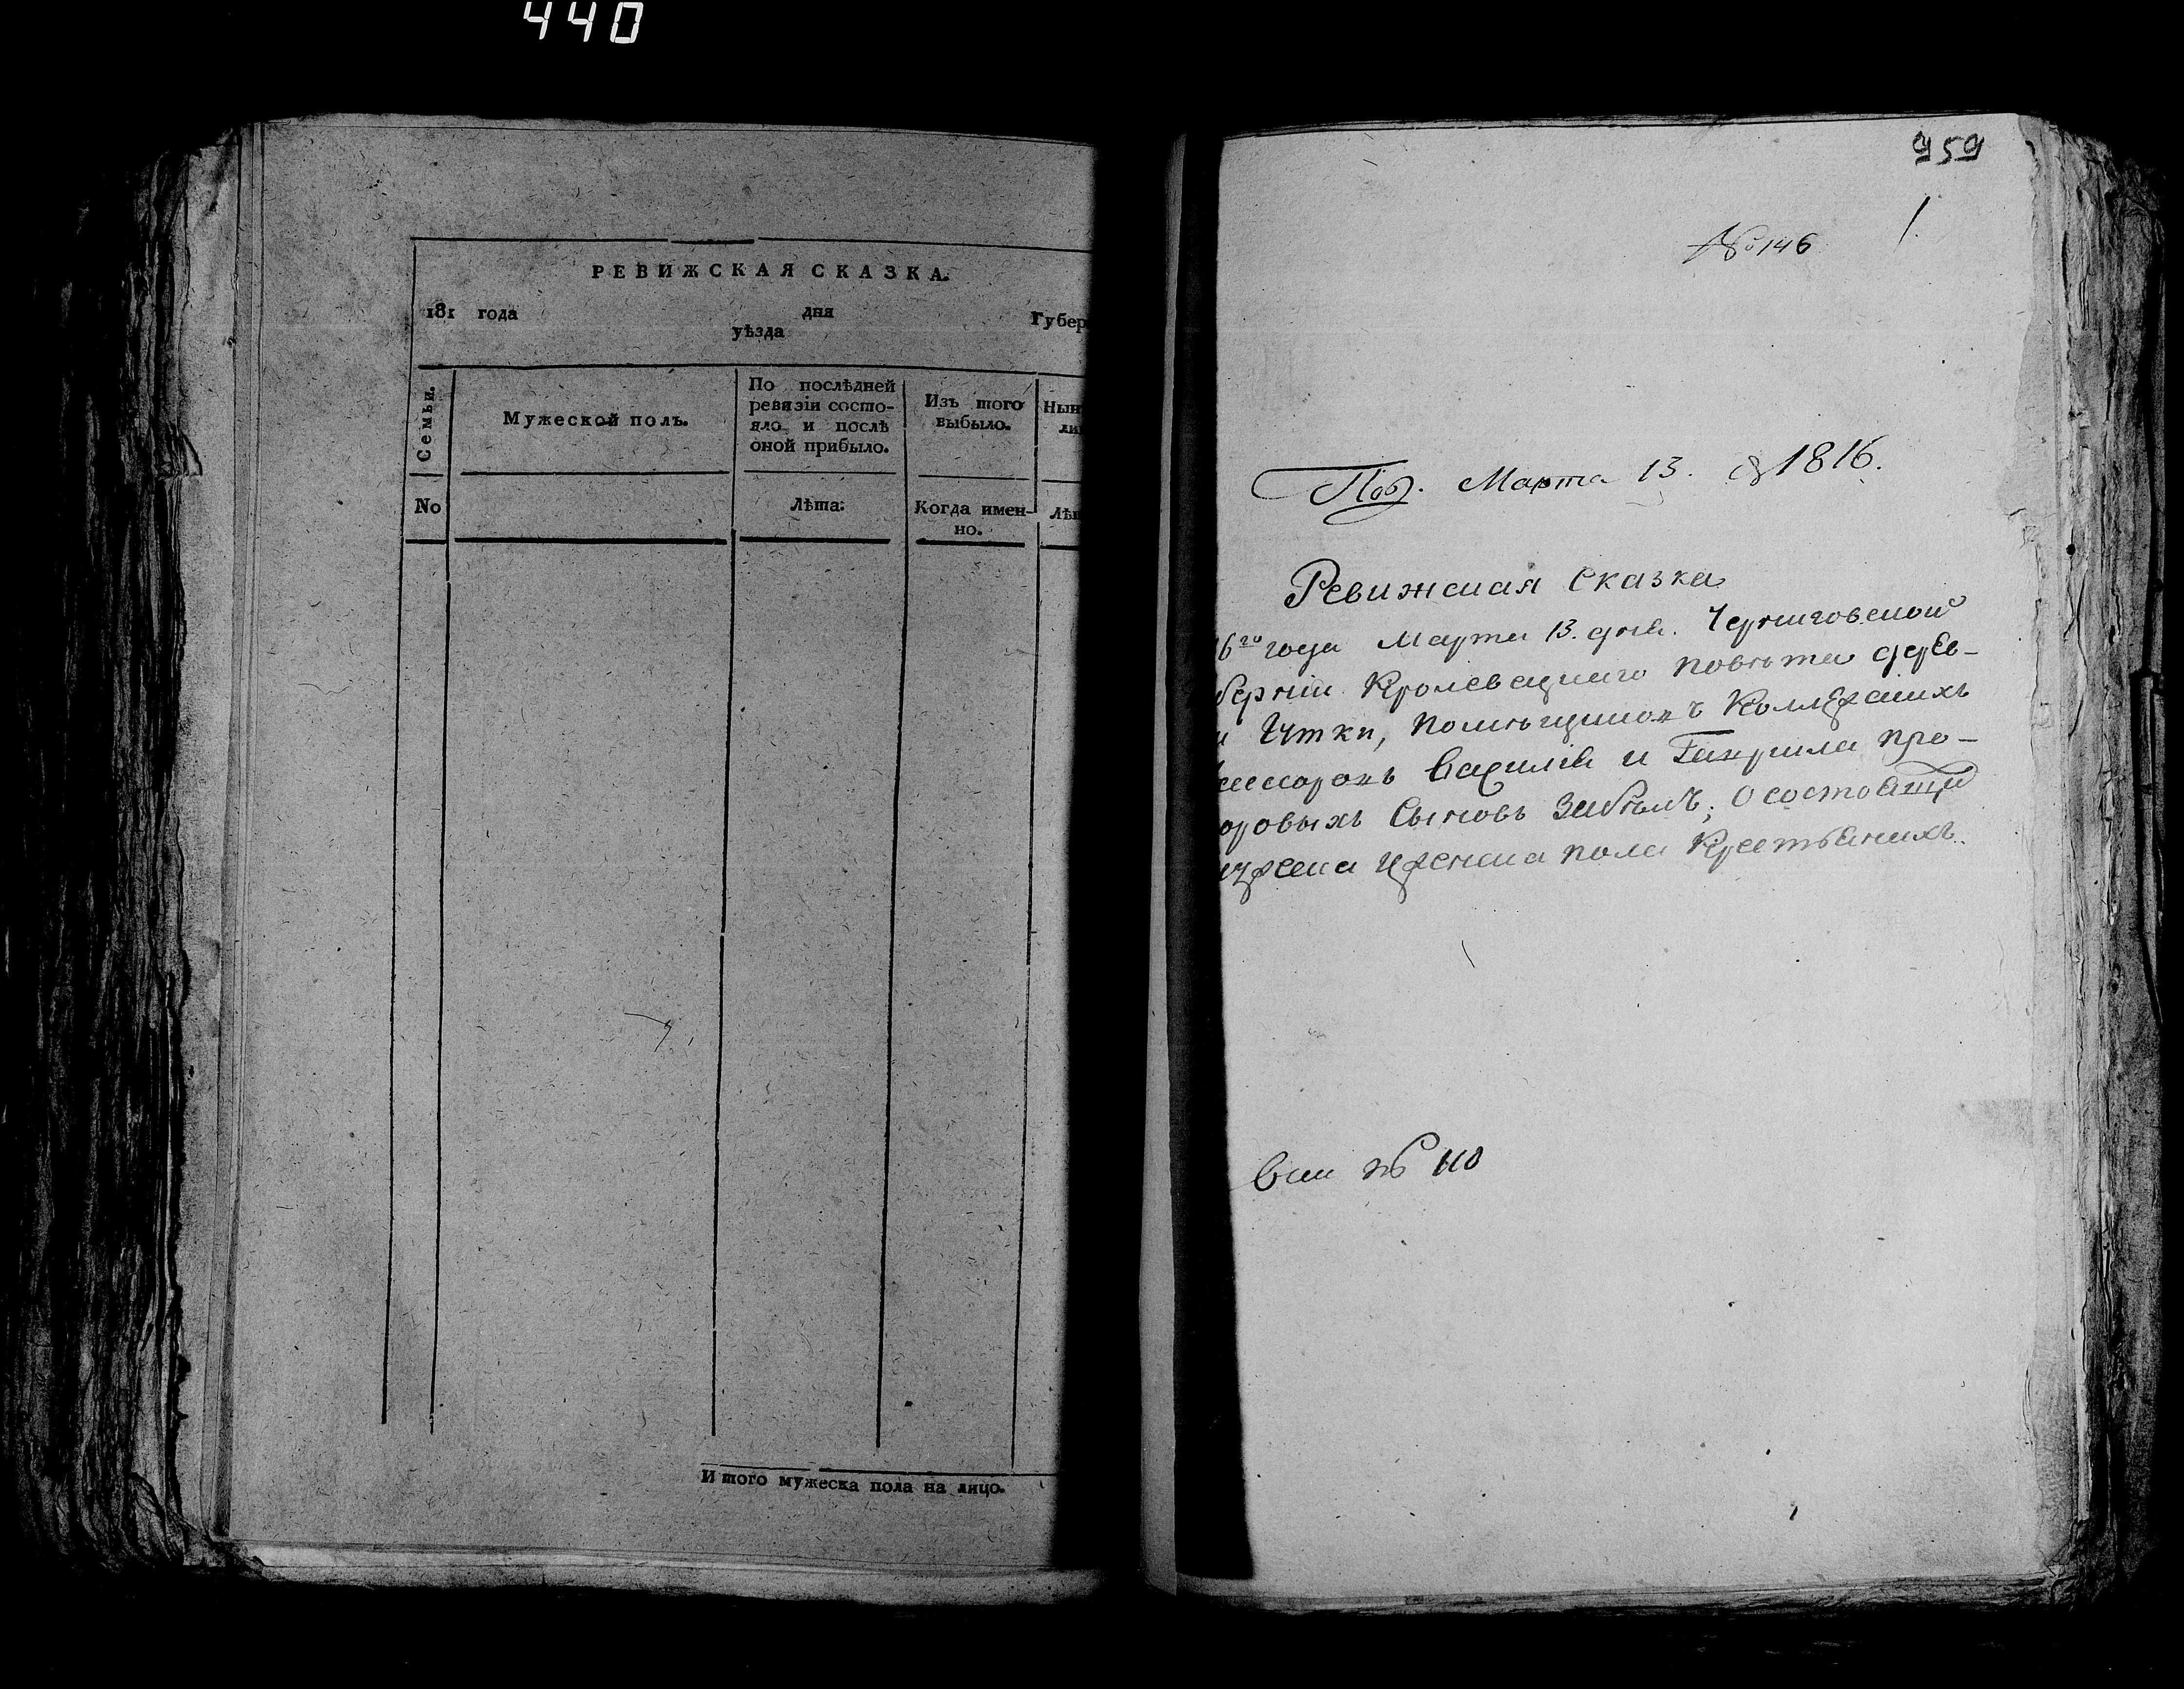 440
РЕВИЖСКАЯ СКАЗКА.
181 года дня Губер
уѣзда
Семьи.
Мужеской полъ.
По послѣдней
ревизіи состо-
яло и послѣ
оной прибыло.
Изъ того
выбыло.
Нын
ли
No
Лѣта:
Когда имен-
но.
Лѣт
И того мужеска пола на лицо.
959
1.
№ 146
Под. Марта 13. 1816.
Ревижская Сказка
6го года Марта 13. дня. Черниговской
берніи Кролевецкаго повѣта дерев-
и Чуткн, помѣщиковъ Коллежскихъ
ссесоровъ Василія и Гаврила про-
оровыхъ Сыновъ Забѣлъ; О состоящи
ужеска Иженска пола Крестьянихъ.
№ 110